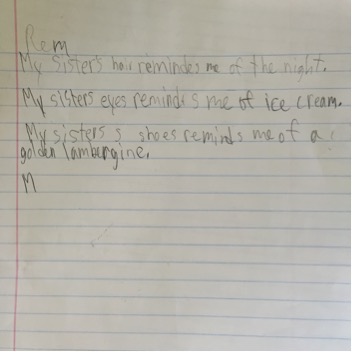 Rem
My Sister's hair remindes me of the night.
My sisters eyes reminds me of ice cream.
My sisters s shoes reminds me of a
golden lambergine.
M